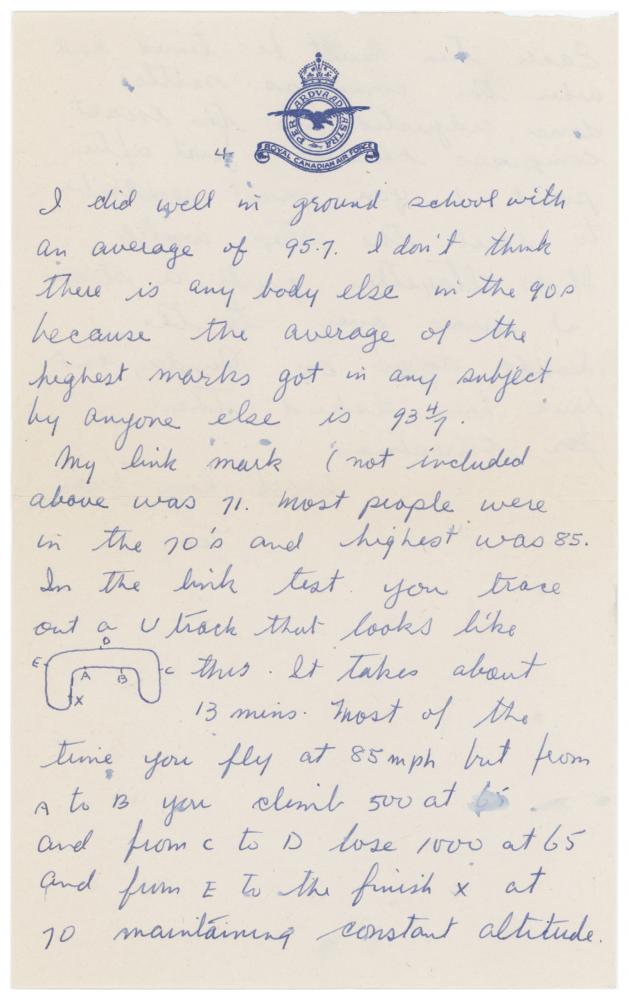 PER ARDVA AD ASTRA
ROYAL CANADIAN AIR FORCE
4
I did well in ground school with
an average of 95.7. I don't think
there is any body else in the 90s
because the average of the
highest marks got in any subject
by anyone else is 93 4/7.
My link mark (not included
above was 71. Most people were
in the 70's and highest was 85.
In the link test you trace
out a U track that looks like
D
E
A B C this. It takes about
X
13 mins. Most of the
time you fly at 85 mph but from
A to B you climb 500 at 65
and from C to D lose 1000 at 65
and from E to the finish X at
70 maintaining constant altitude.